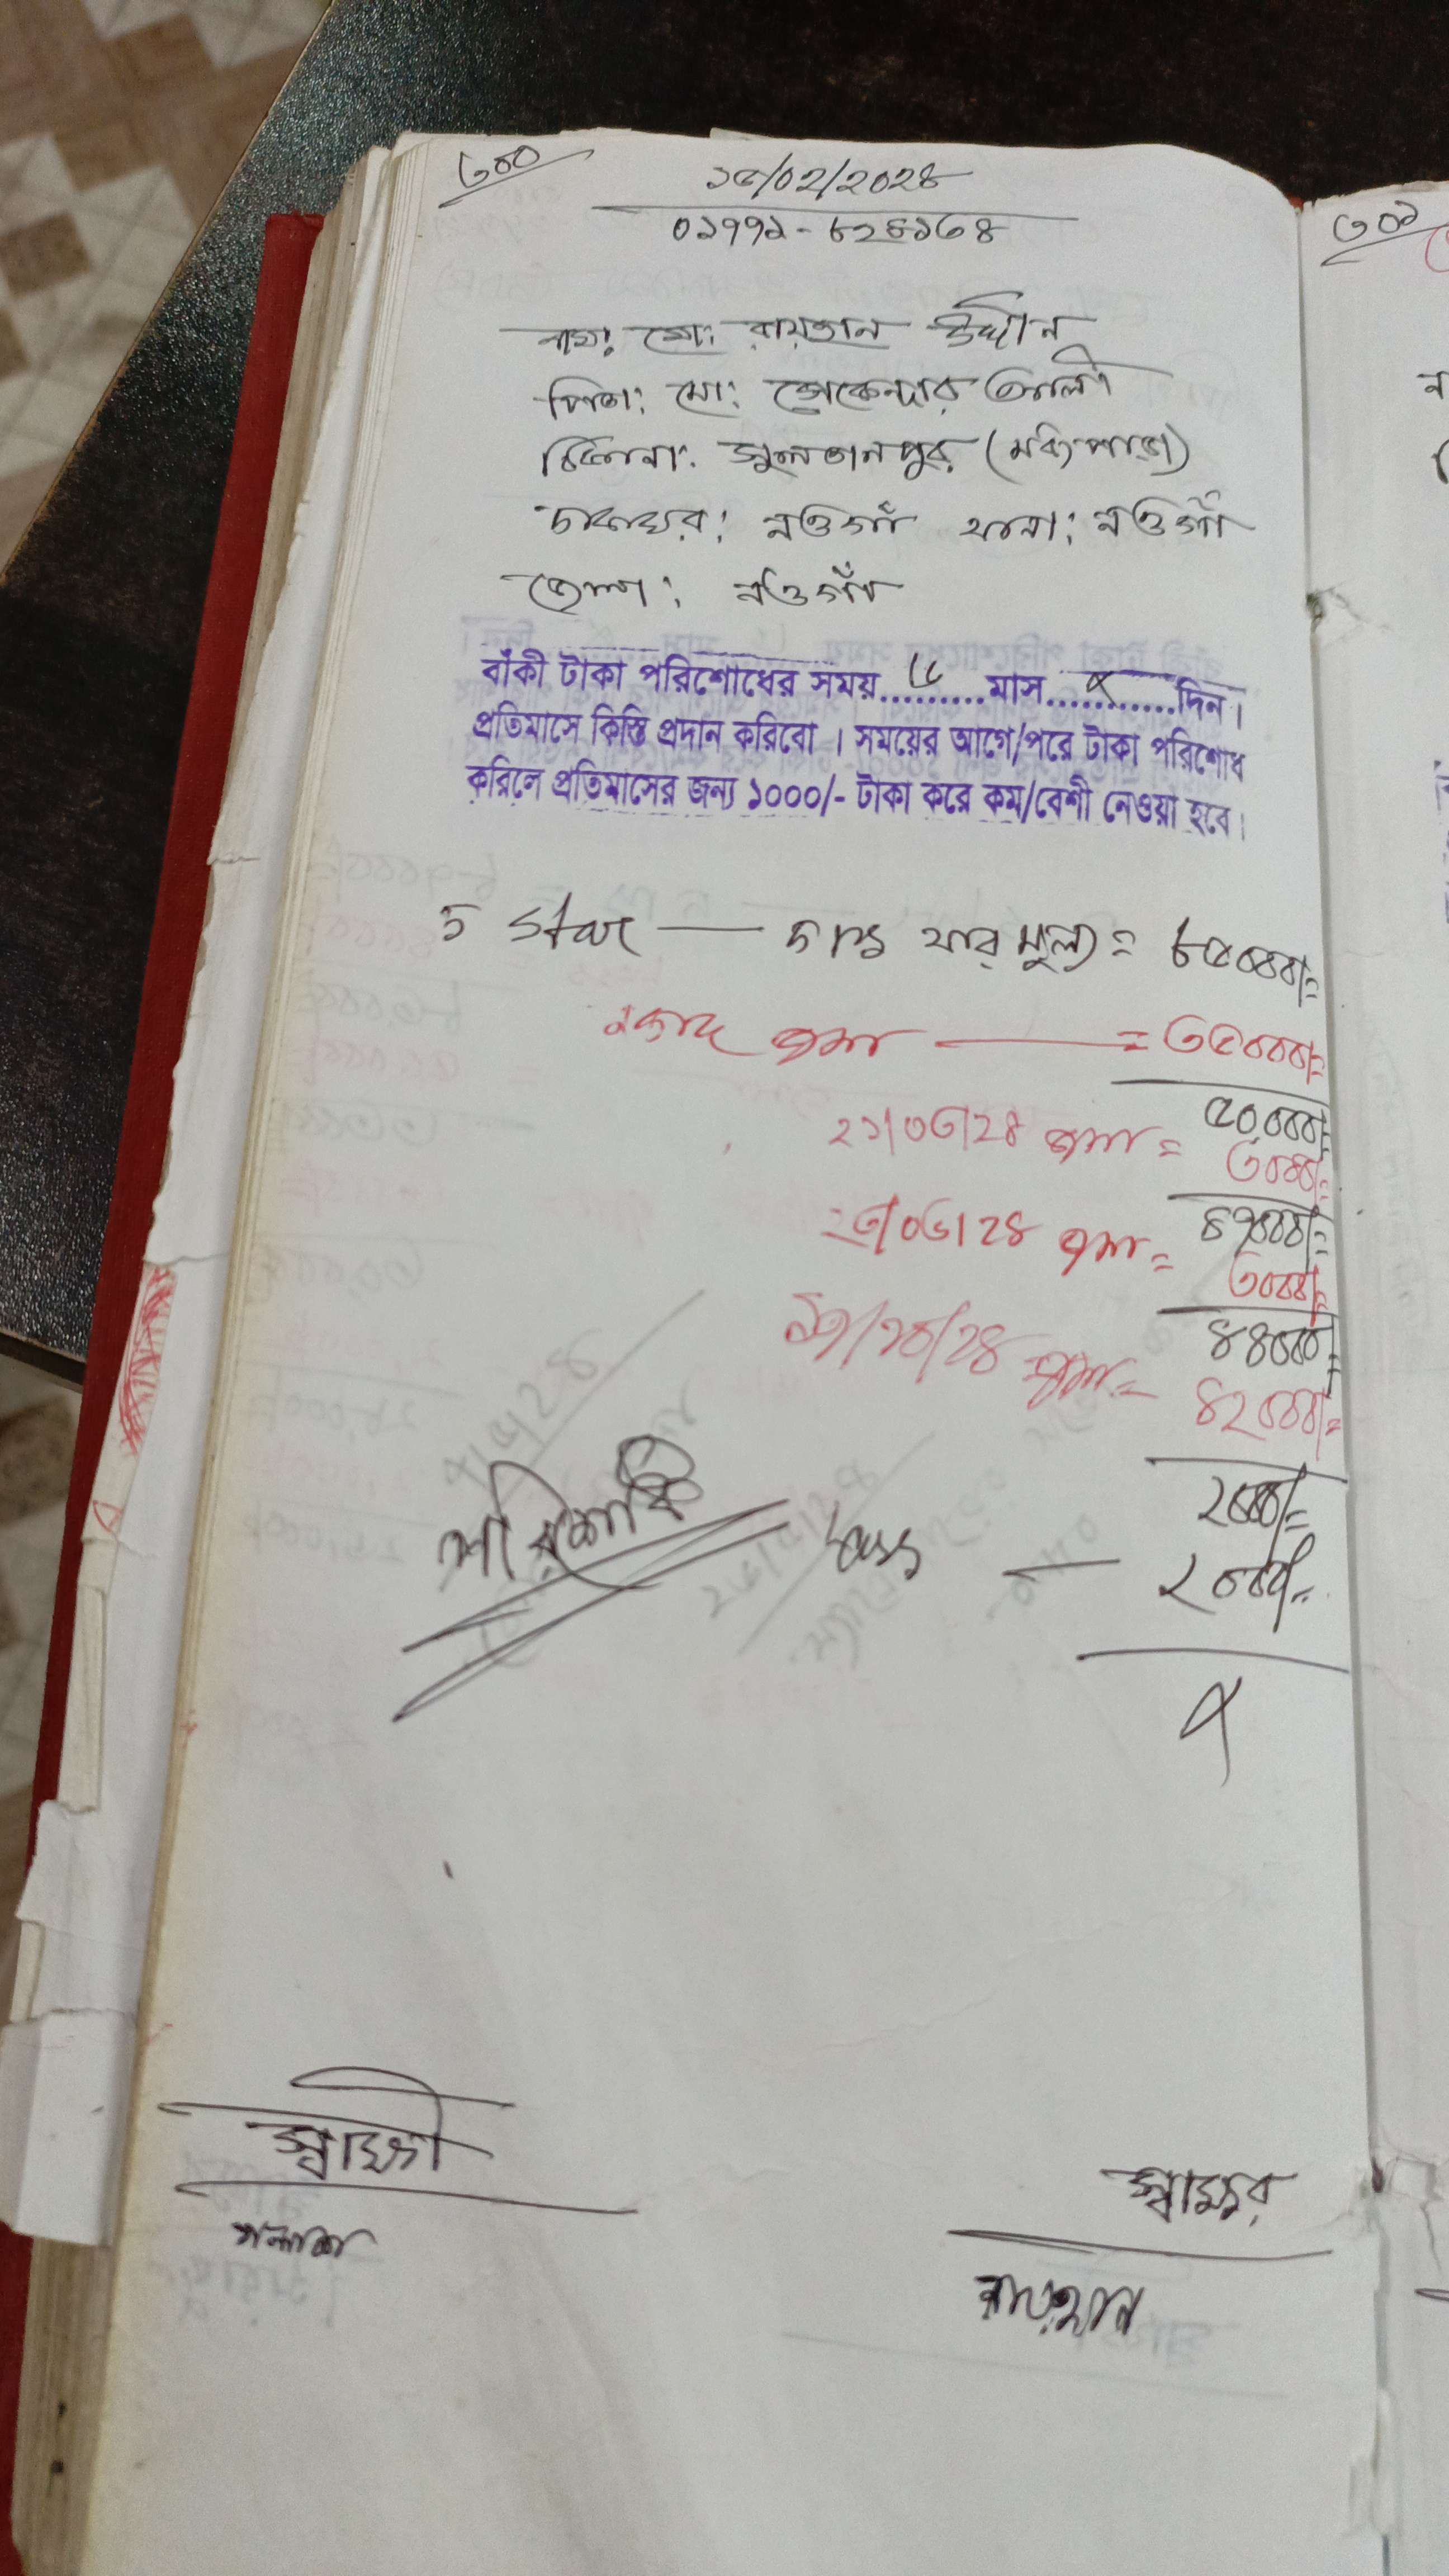 ৩০০
১৫/০২/২০২৪
০১৭৭১-৮২৪১৬৪
নাম: মো: রায়হান উদ্দীন
পিতা: মো: সেকেন্দার আলী
ঠিকানা: সুলতানপুর (মধ্যপাড়া)
ডাকঘর: নওগাঁ থানা: নওগাঁ
জেলা: নওগাঁ
বাঁকী টাকা পরিশোধের সময়.........মাস............দিন।
প্রতিমাসে কিস্তি প্রদান করিবো । সময়ের আগে/পরে টাকা পরিশোধ
করিলে প্রতিমাসের জন্য ১০০০/- টাকা করে কম/বেশী নেওয়া হবে।
5 Star — যার মূল্য = ৮৫০০০/=
নগদ জমা — = ৩৫০০০/=
৫০,০০০/=
২১/০৩/২৪ জমা = ৩০০০/=
৪৭০০০/=
২৩/০৬/২৪ জমা = ৩০০০/=
৪৪০০০/=
১৩/১০/২৪ জমা = ৪২০০০/=
২০০০/=
পরিশোধ — ২০০০/=
স্বাক্ষী
স্বাক্ষর
রায়হান
৩০১